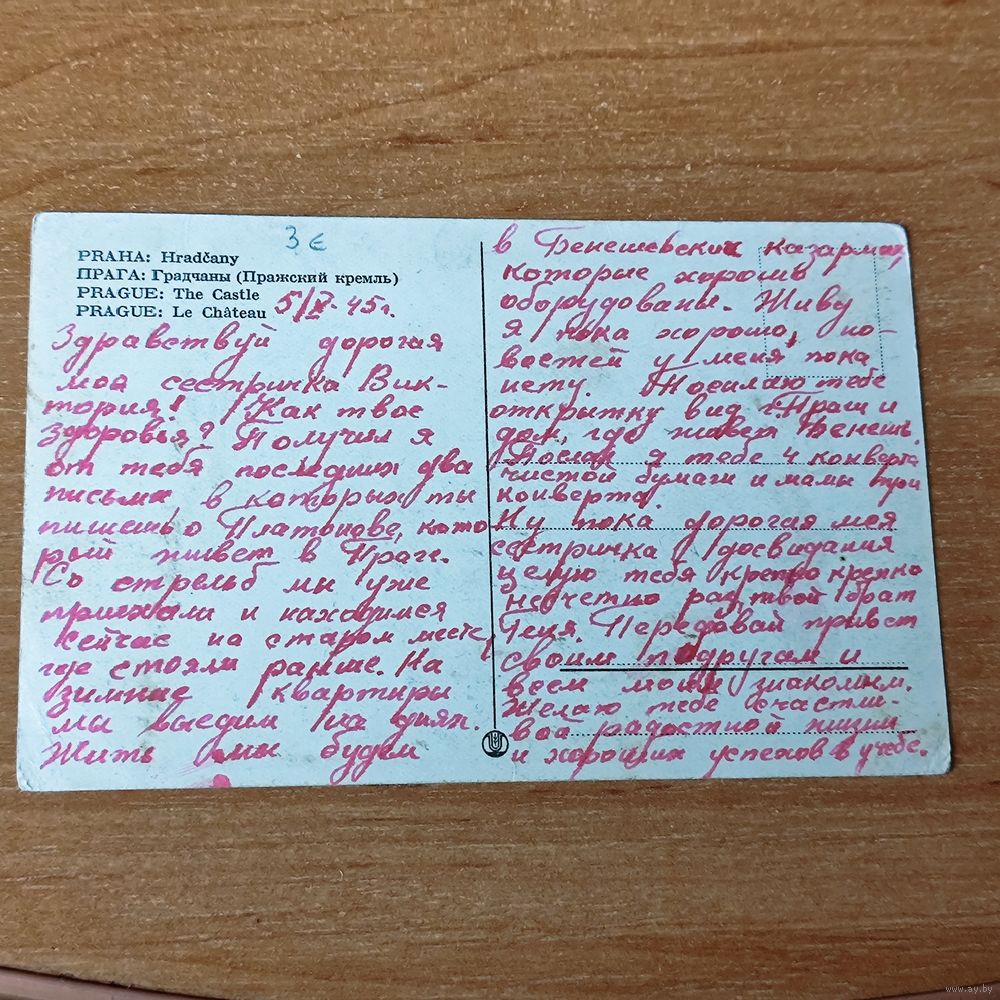 3 €
PRAHA: Hradčany
ПРАГА: Градчаны (Пражский кремль)
PRAGUE: The Castle
PRAGUE: Le Château
45г.
Здравствуй дорогая
моя сестричка Вик-
тория! Как твое
здоровья? Получил я
от тебя последних два
письма в которых ты
пишешь о Платонове, кото
рый живет в Праге.
Со стрельб мы уже
приехали и находимся
сейчас на старом месте,
где стояли раньше. На
зимние квартиры
мы выедим на днях.
Жить мы будем
в Бенешевских казармах,
которые хорошо
оборудованы. Живу
я пока хорошо, но-
востей у меня пока
нету. Посылаю тебе
открытку вид г. Праги и
дом, где живет Бенешь.
Послал я тебе 4 конверта
чистой бумаги и мамы три
конверта.
Ну пока дорогая моя
сестричка досвидания
целую тебя крепко крепко
несчетно раз, твой брат
Геня. Передавай привет
своим подругам и
всем моим знакомым.
Желаю тебе счастли-
вой радостной жизни
и хороших успехов в учебе.
www.ay.by